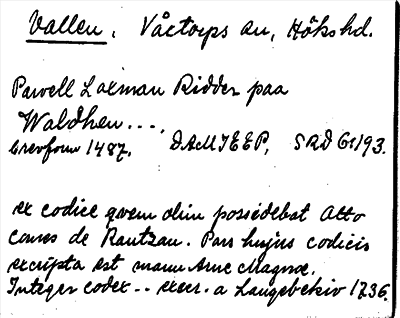 Vallen, Våxtorps sn, Höks hd.
Pawell Laxman Ridder paa
Waldhen ....
brevform 1487. DAMJEEP, SRD G:193.
ex codice qvem olim possidebat Otto
comes de Rantzau. Pars hujus codicis
excripta est manu Arne Magnæ.
Integer codex .. excr. a Langebekio 1736.